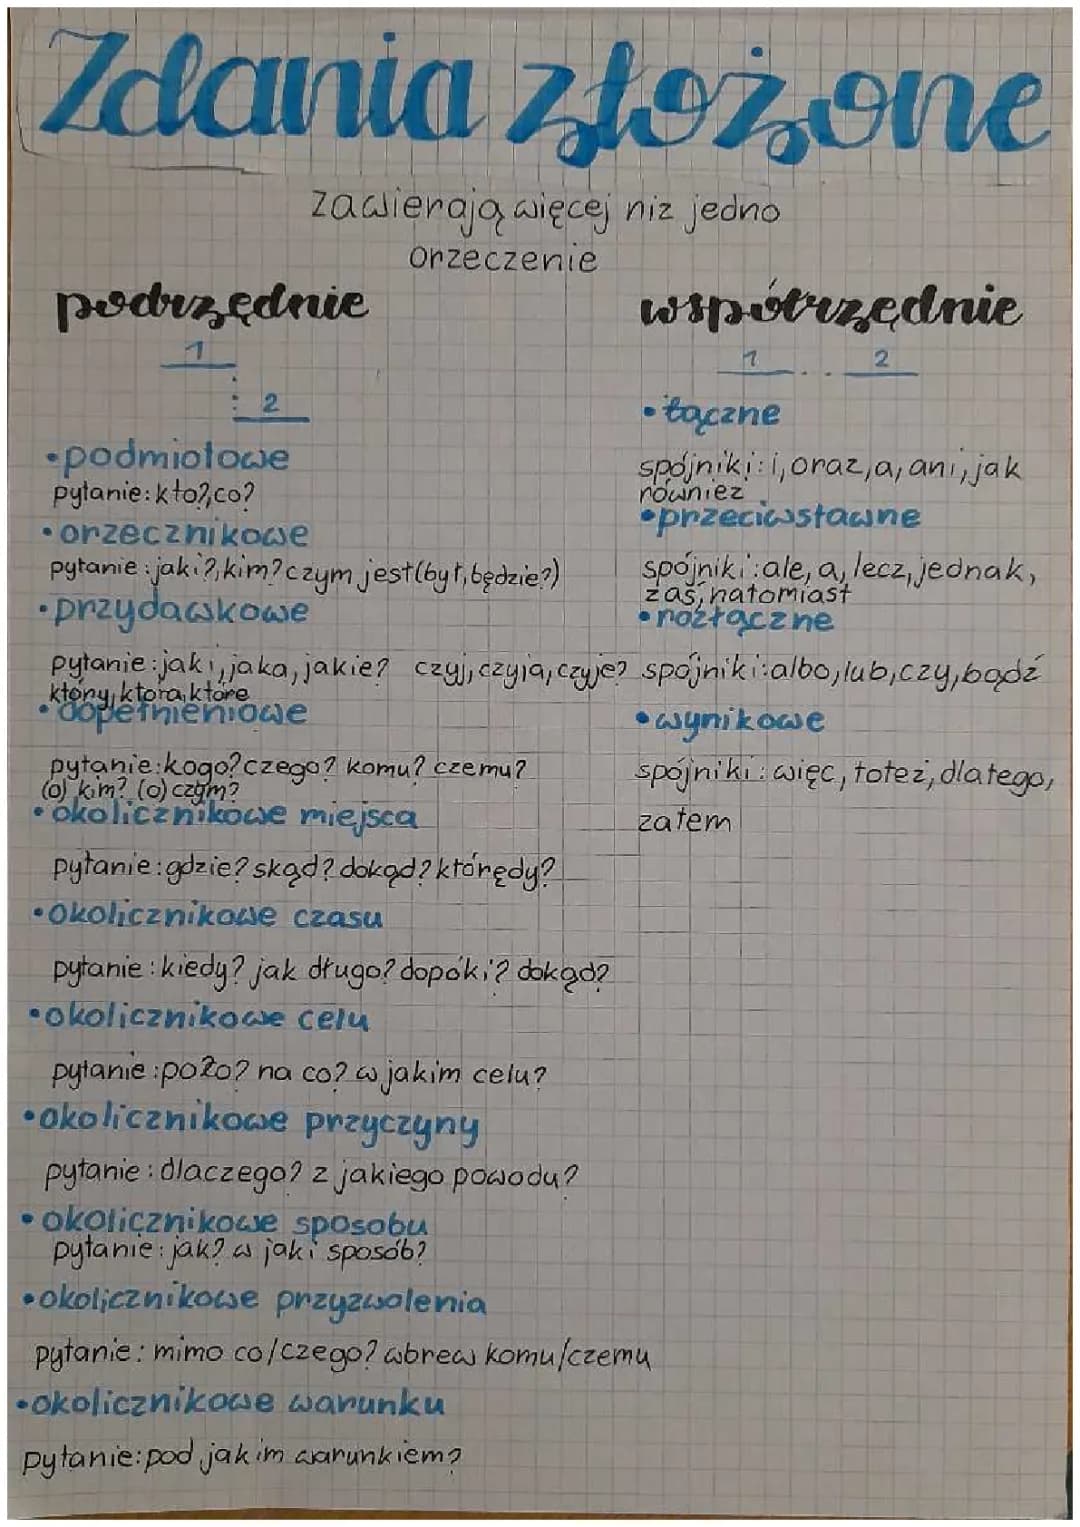 Zdania złożone
zawierają więcej niz jedno
orzeczenie
podrzędnie
1
2
•podmiotowe
pytanie: kto?, co?
•orzecznikowe
pytanie: jaki?, kim? czym jest (był, będzie?)
•przydawkowe
pytanie: jaki, jaka, jakie? czyj, czyja, czyje?
który, która, które
•dopełnieniowe
pytanie: kogo? czego? komu? czemu?
(o) kim? (o) czym?
•okolicznikowe miejsca
pytanie: gdzie? skąd? dokąd? którędy?
•okolicznikowe czasu
pytanie: kiedy? jak długo? dopóki? dokąd?
•okolicznikowe celu
pytanie: po co? na co? w jakim celu?
•okolicznikowe przyczyny
pytanie: dlaczego? z jakiego powodu?
•okolicznikowe sposobu
pytanie: jak? w jaki sposób?
•okolicznikowe przyzwolenia
pytanie: mimo co/czego? wbrew komu/czemu
•okolicznikowe warunku
pytanie: pod jakim warunkiem?
współrzędnie
1 .. 2
•łączne
spójniki: i, oraz, a, ani, jak
również
•przeciwstawne
spójniki: ale, a, lecz, jednak,
zaś, natomiast
•rozłączne
spójniki: albo, lub, czy, bądź
•wynikowe
spójniki: więc, toteż, dlatego,
zatem